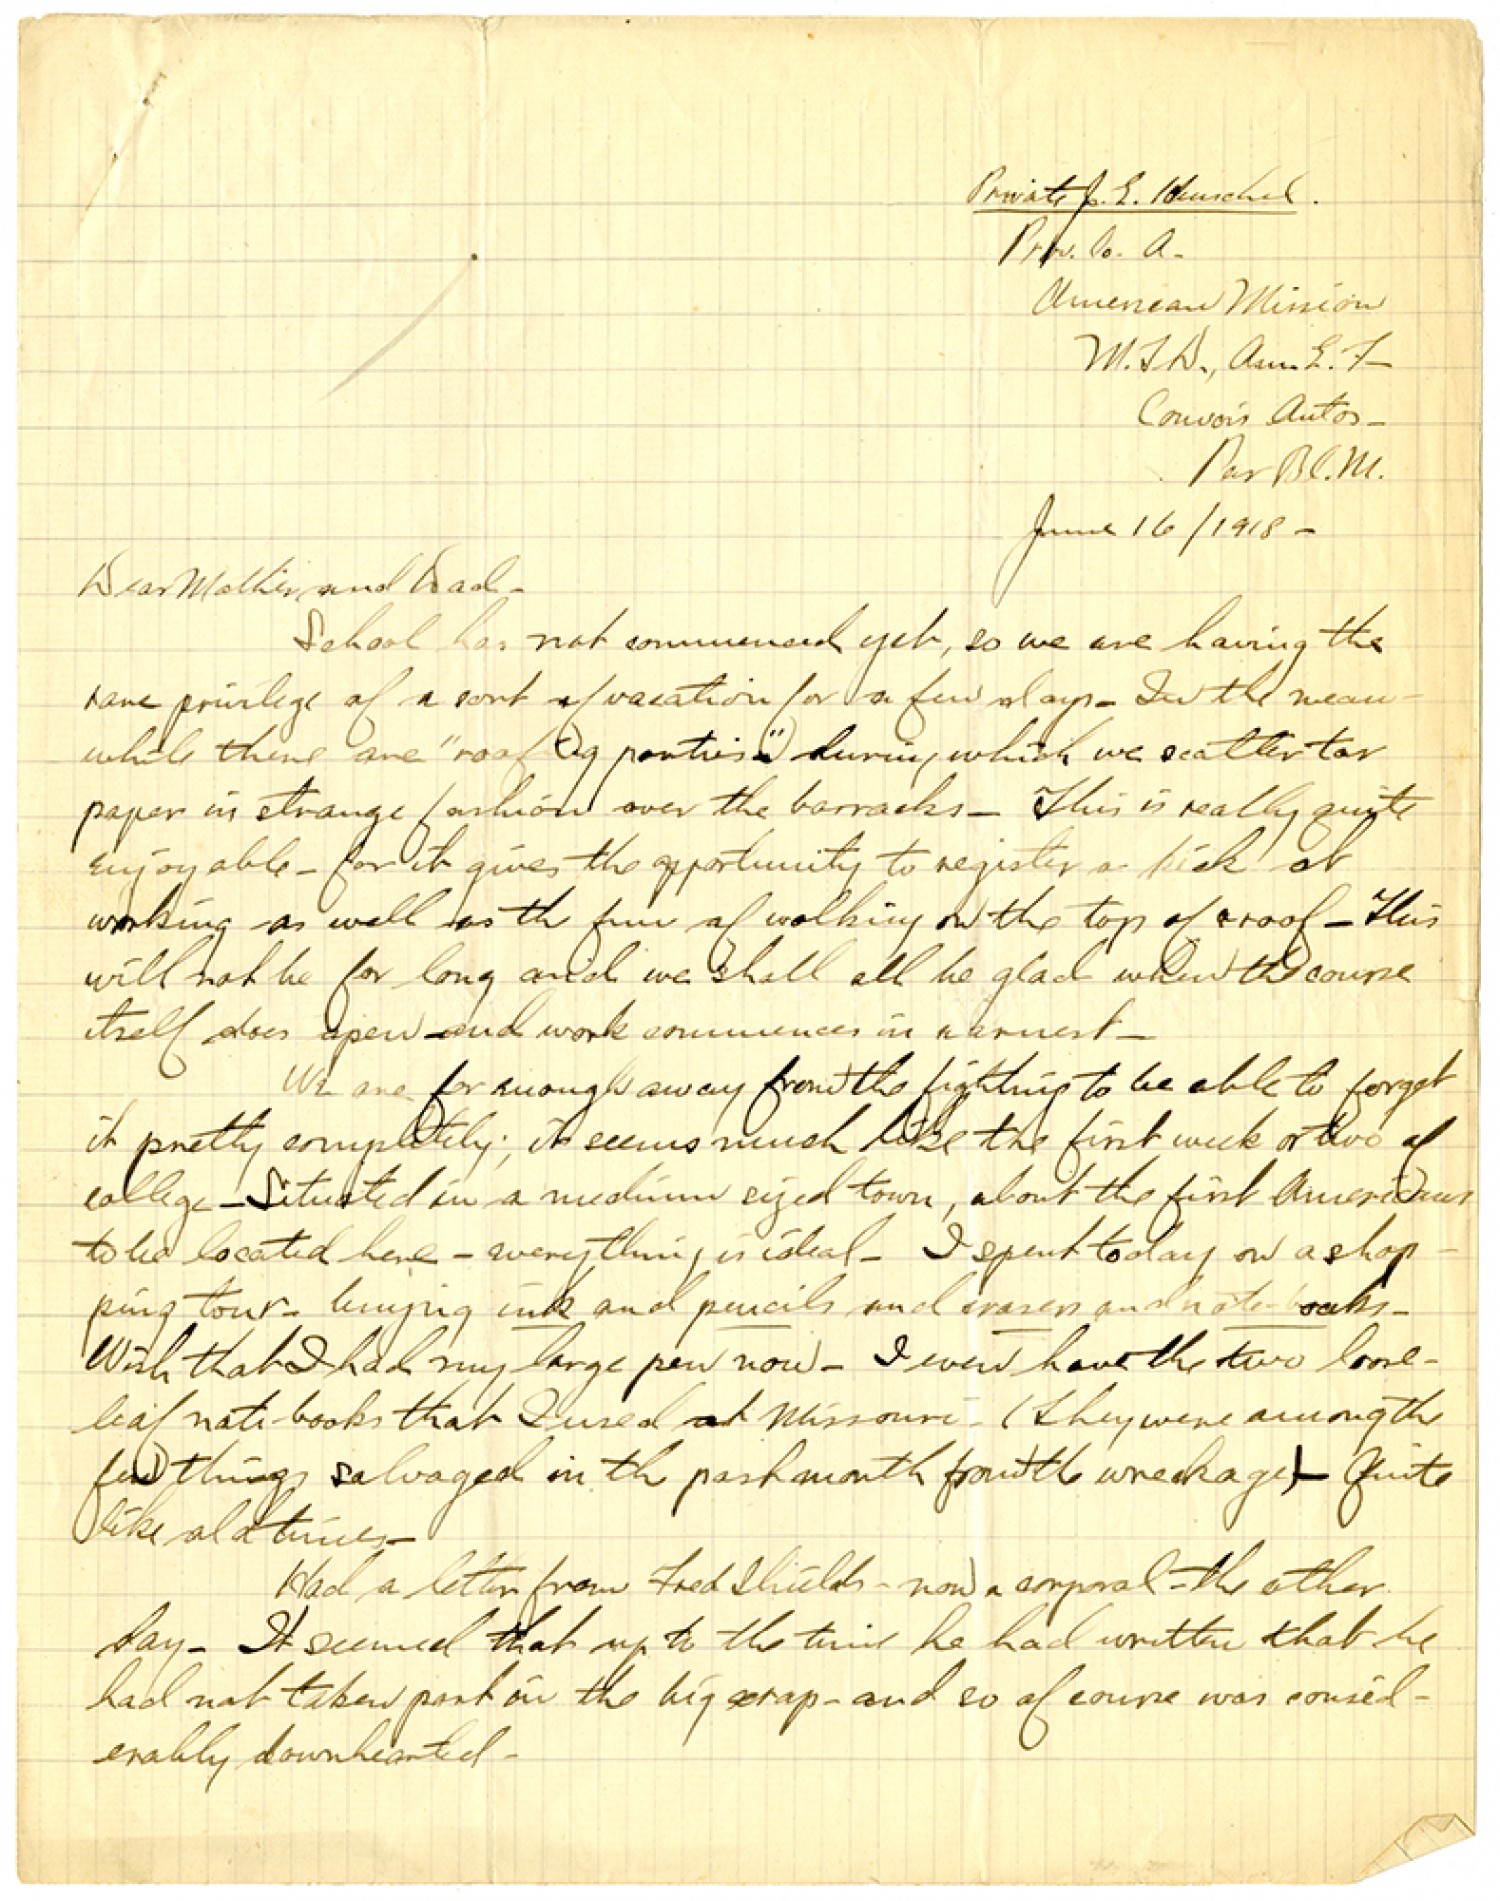 Private J. E. Henschel.
Prov. Co. A-
American Mission
M.T.D., Am. E. F-
Convois Autos-
Par B.C.M.
June 16/1918-
Dear Mother and Dad-
School has not commenced yet, so we are having the
rare privilege of a sort of vacation for a few days- In the mean-
while there are "roofing parties" during which we scatter tar
paper in strange fashion over the barracks- This is really quite
enjoyable- for it gives the opportunity to register a kick at
working as well as the fun of walking on the top of a roof- This
will not be for long and we shall all be glad when the course
itself does open and work commences in earnest-
We are far enough away from the fighting to be able to forget
it pretty completely; it seems much like the first week or two of
college- Situated in a medium sized town, about the first Americans
to be located here- everything is ideal- I spent today on a shop-
ping tour- buying ink and pencils and erasers and note-books-
Wish that I had my large pen now- I even have the two loose-
leaf note-books that I used at Missouri- (They were among the
few things salvaged in the past month from the wreckage)- Quite
like old times-
Had a letter from Fred Shields- now a corporal- the other
day- It seemed that up to the time he had written that he
had not taken part in the big scrap- and so of course was consid-
erably downhearted-